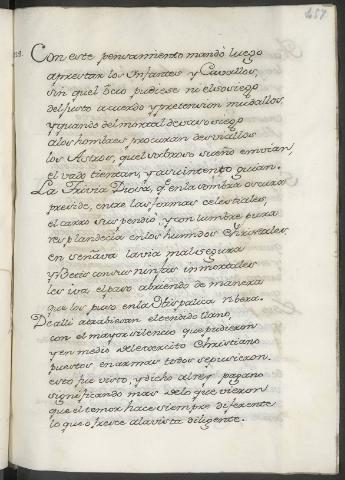 457
Con este pensamiento mandó luego
aprestar los Infantes y Cavallos,
sin quel ocio pudiese ni el sosiego
del justo acuerdo y pretension mudallos.
y quando del mortal desasosiego
a los hombres procuran desviallos
los Astros, quel sabroso sueño envian,
el vado tientan, y a su intento guian.
La Trivia Diosa, qe. en la sombra oscura
preside, entre las formas celestiales,
el carro suspendió y con lumbre pura
resplandecia en los humidos Christales,
enseñava la via mal segura
y Betis con sus ninfas inmortales
les iva el paso abriendo de manera
que los puso en la Hispalica ribera.
De alli atrabiesan el tendido llano,
con el mayor silencio que pudieron
y en medio del exercito Christiano
puestos en armas todos se pusieron.
esto fue visto, y dicho al rey pagano
significando mas de lo que vieron
que el temor hace siempre diferente
lo que ofrece a la vista diligente.